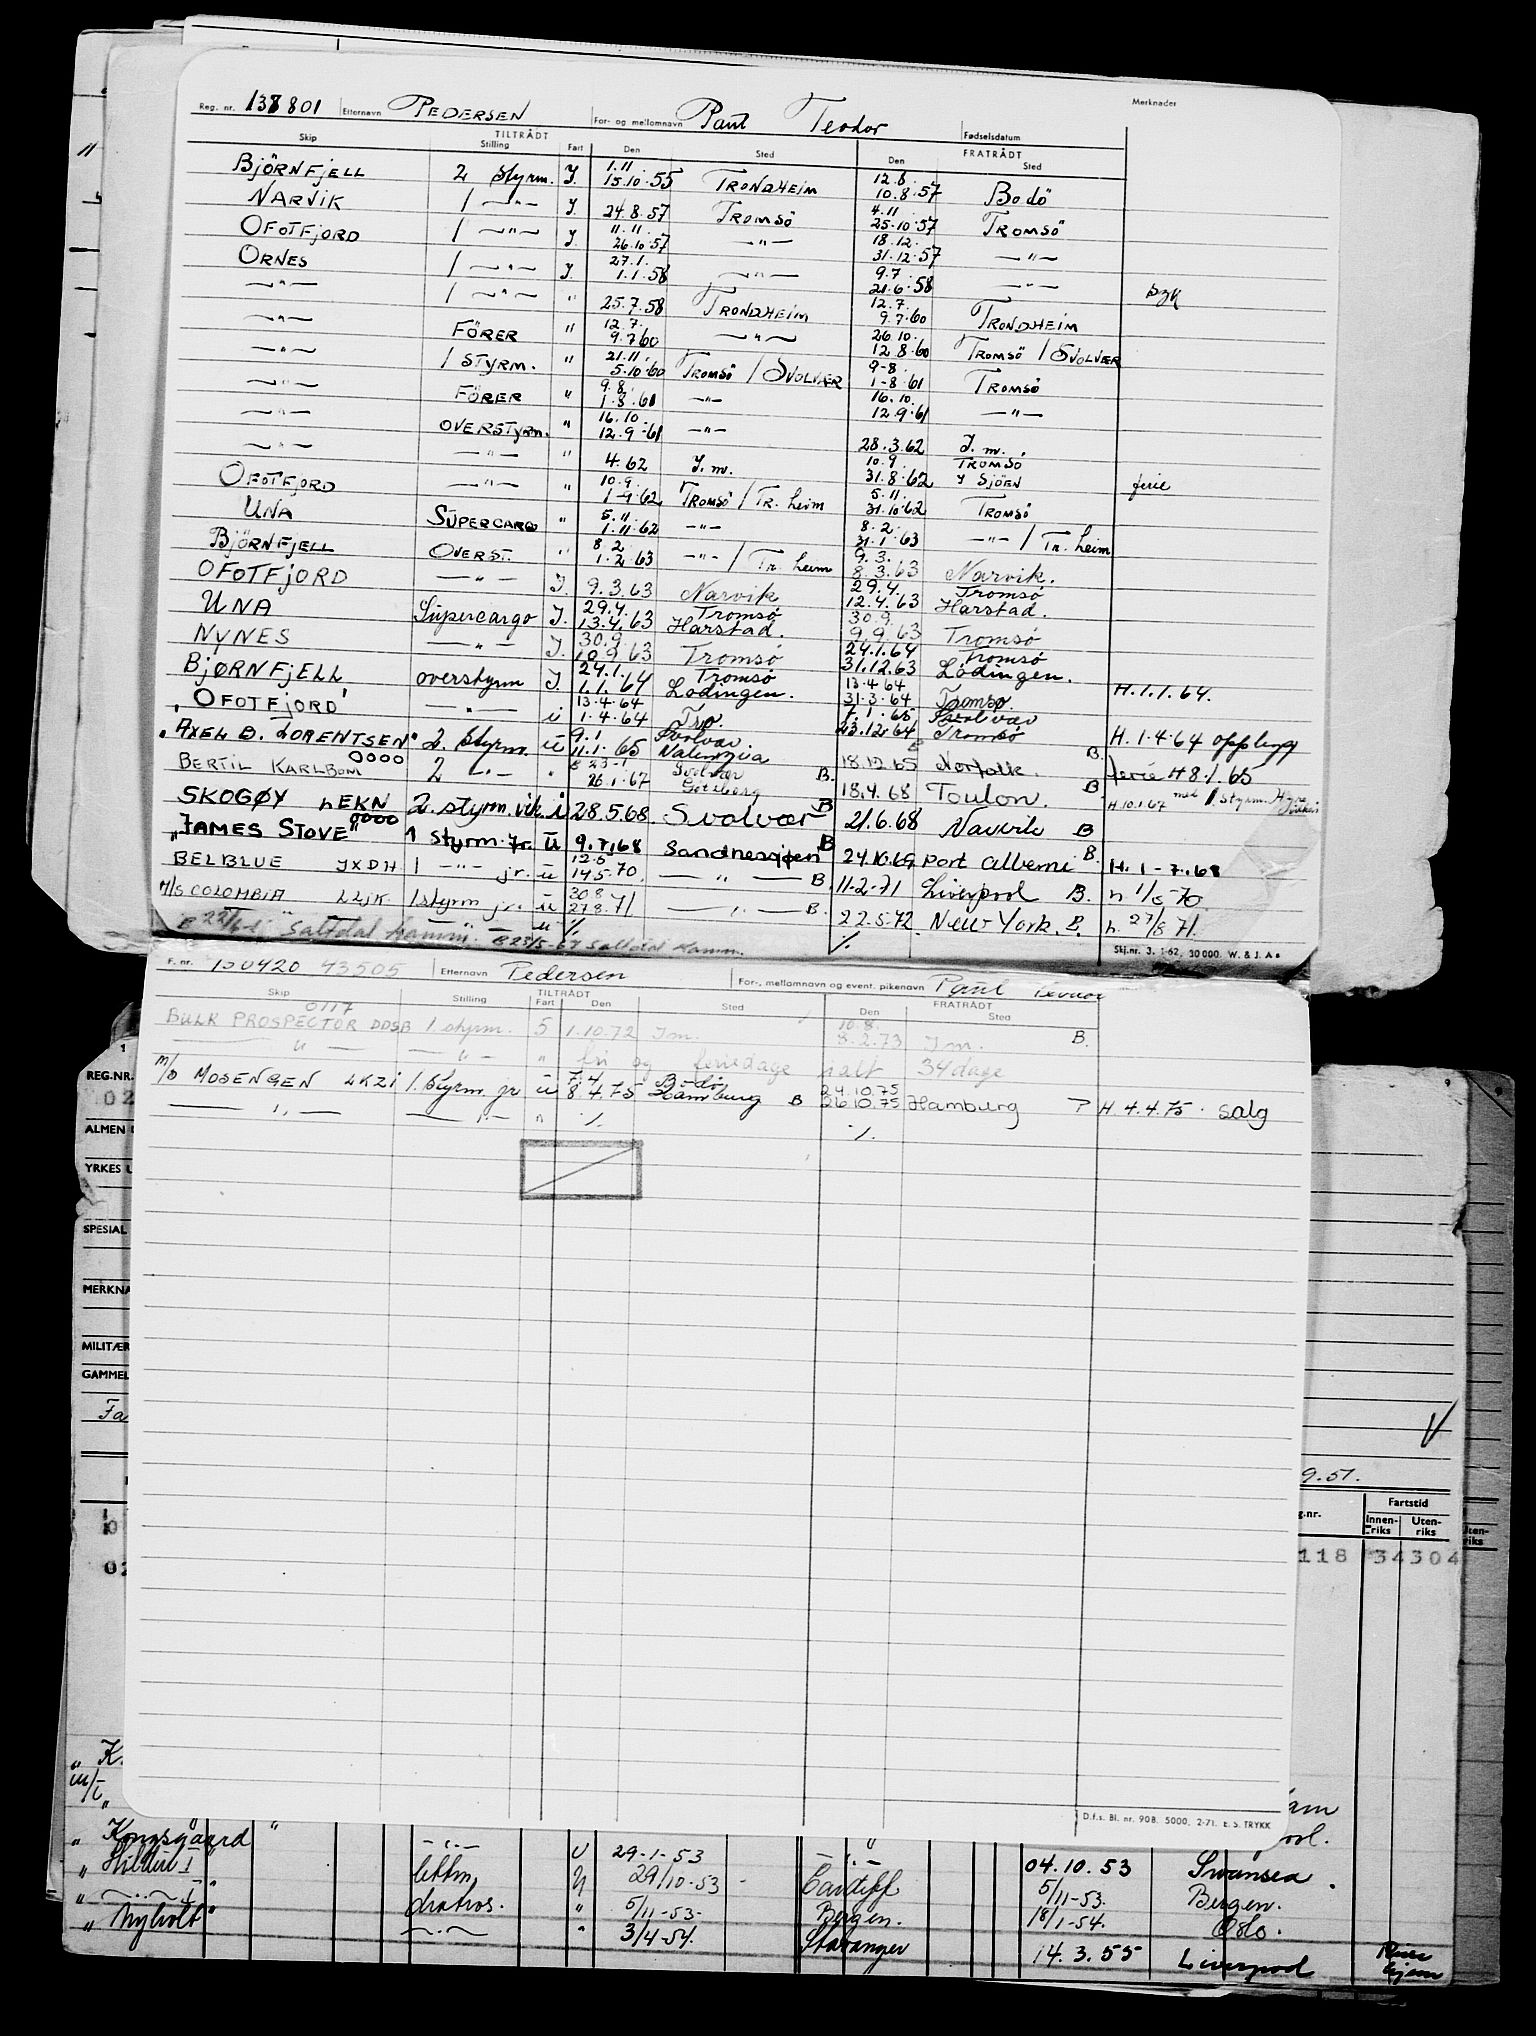 Merknader
Reg. nr. 138801 Etternavn PEDERSEN For- og mellomnavn Paul Teodor Fødselsdatum
Skip TILTRÅDT Stilling Fart Den Sted FRATRÅDT Den Sted
BJÖRNFJELL 2 styrm. J. 1.11 15.10.55 TRONDHEIM 12.8. 10.8.57 BODÖ
NARVIK 1 —"— J. 24.8.57 TROMSÖ 4.11 25.10.57 TROMSÖ
OFOTFJORD 1 —"— J. 11.11. 26.10.57 —"— 18.12. 31.12.57 —"—
ORNES 1 —"— J. 27.1. 1.1.58 —"— 9.7 21.6.58 —"— syk
—"— 1 —"— " 25.7.58 TRONDHEIM 12.7. 9.7.60 TRONDHEIM
—"— FÖRER " 12.7. 9.7.60 —"— 26.10. 12.8.60 TROMSÖ / SVOLVÆR
—"— 1 STYRM. " 21.11. 5.10.60 TROMSÖ / SVOLVÆR 9-8. 1-8.61 TROMSÖ
—"— FÖRER " 9.8. 1.8.61 —"— 16.10. 12.9.61 —"—
—"— OVERSTYRM. " 16.10. 12.9.61 —"— 28.3.62 J.m.
—"— —"— " 4.62 J.m. 10.9. 31.8.62 TROMSÖ Y SJÖEN ferie
OFOTFJORD —"— " 10.9. 1-9.62 TROMSÖ / TR.heim 5.11. 31.10.62 TROMSÖ
UNA SUPERCARGO " 5.11. 1.11.62 —"— 8.2. 31.1.63 —"— / Tr.heim
BJÖRNFJELL OVERST. " 8.2 1.2.63 —"— / Tr.heim 9.3. 8.3.63 Narvik.
OFOTFJORD —"— J. 9.3.63 Narvik 29.4. 12.4.63 Tromsø Harstad.
UNA Supercargo J. 29.4. 13.4.63 Tromsø Harstad. 30.9. 9.9.63 Tromsø
NYNES —"— J. 30.9. 10.9.63 Tromsø 24.1.64 31.12.63 Tromsø Lödingen.
BJØRNFJELL overstyrm J. 24.1. 1.1.64 Tromsø Lödingen. 13.4.64 31.3.64 Tromsø. H.1.1.64.
"OFOTFJORD" —"— i 13.4.64 1.4.64 Trø. 7.1.65 23.12.64 Svolvær Tromsø H.1.4.64 opplegg
"AXEL B. LORENTSEN" 2. styrm. u 9.1 11.1.65 Svolvær Valencia B. 18.12.65 Norfolk. B. ferie H 8.1.65
BERTIL KARLBOM 0000 2 —"— " 23-1 26.1.67 Svolvær Göteborg B. 18.4.68 Toulon. B H.10.1.67
SKOGØY LEKN 2. styrm. vik. i 28.5.68 Svolvær B 21.6.68 Narvik B
"JAMES STOVE" 0000 1 styrm. jr. u 9.7.68 Sandnessjøen B 24.10.69 Port Alberni B. H. 1-7.68
BELBLUE JXDH 1 —"— jr. u 12.5 14.5.70. —"— B. 11-2-71 Liverpool B. h 1/5-70
M/S COLOMBIA LLJK 1styrm jr. u 30.8 27.8.71 —"— B. 22.5.72 New York. B. h. 27/8 71.
"Saltdal kamm". —"— u % B 23/5-67 Saltdal kamm. %
Skj.nr. 3. 1-62, 30 000. W. & J. A s
F. nr. 150420 43505 Etternavn Pedersen For-, mellomnavn og event. pikenavn Paul Teodor
Skip Stilling TILTRÅDT Fart Den Sted FRATRÅDT Den Sted
0117
BULK PROSPECTOR DDSB 1. styrm. 5 1.10.72 Jm. 10.8. 8.2.73 Jm. B.
—"— —"— " fri og feriedage ialt 34 dage
M/S MOSENGEN LKZI 1. styrm jr u 7.4 8.4.75 Bodø Hamburg B 24.10.75 26.10.75 Hamburg P H 4.4.75. salg
—"— —"— " % %
D.f.s. Bl. nr. 908. 5000. 2-71. E. S. TRYKK
11
REG.NR.
02
ALMEN
YRKES
SPESIAL
MERKNA
MILITÆR
GAMMEL
Fa
9.51.
g.nr. Fartstid
Innen-riks Uten-riks
118 34304
02
" Kongsgaard " —"— U 29-1-53 —"— 04.10.53 Swansea.
" Hildur I " lettm. U 29/10-53 Cardiff 5/11-53. Bergen.
" —"— I " matros. " 5/11-53- Bergen. 18/1-54. Oslo.
" Nyholt " —"— " 3/4-54. Stavanger 14.3.55 Liverpool Reise hjem